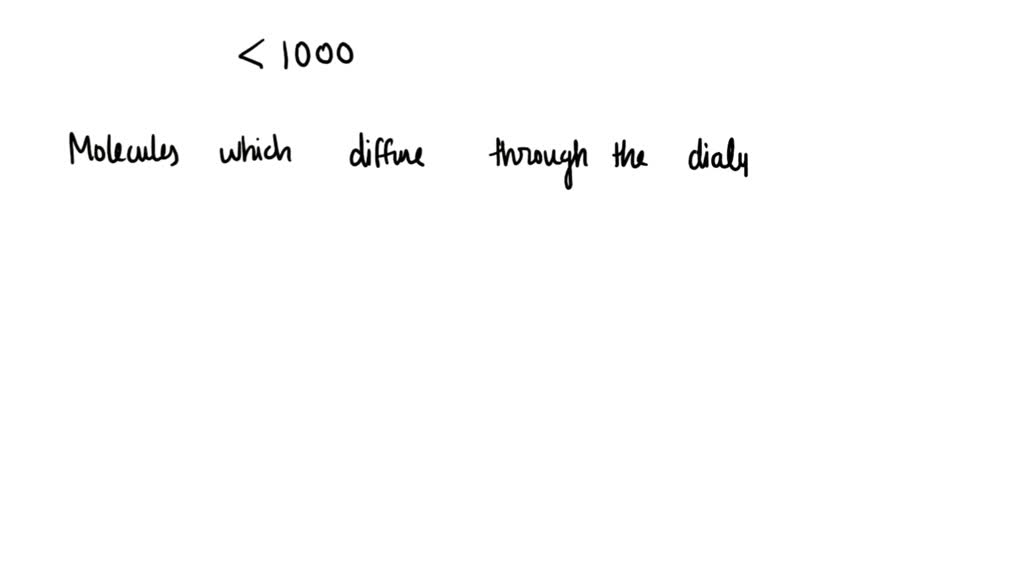 < 1000
Molecules which diffuse through the dialy